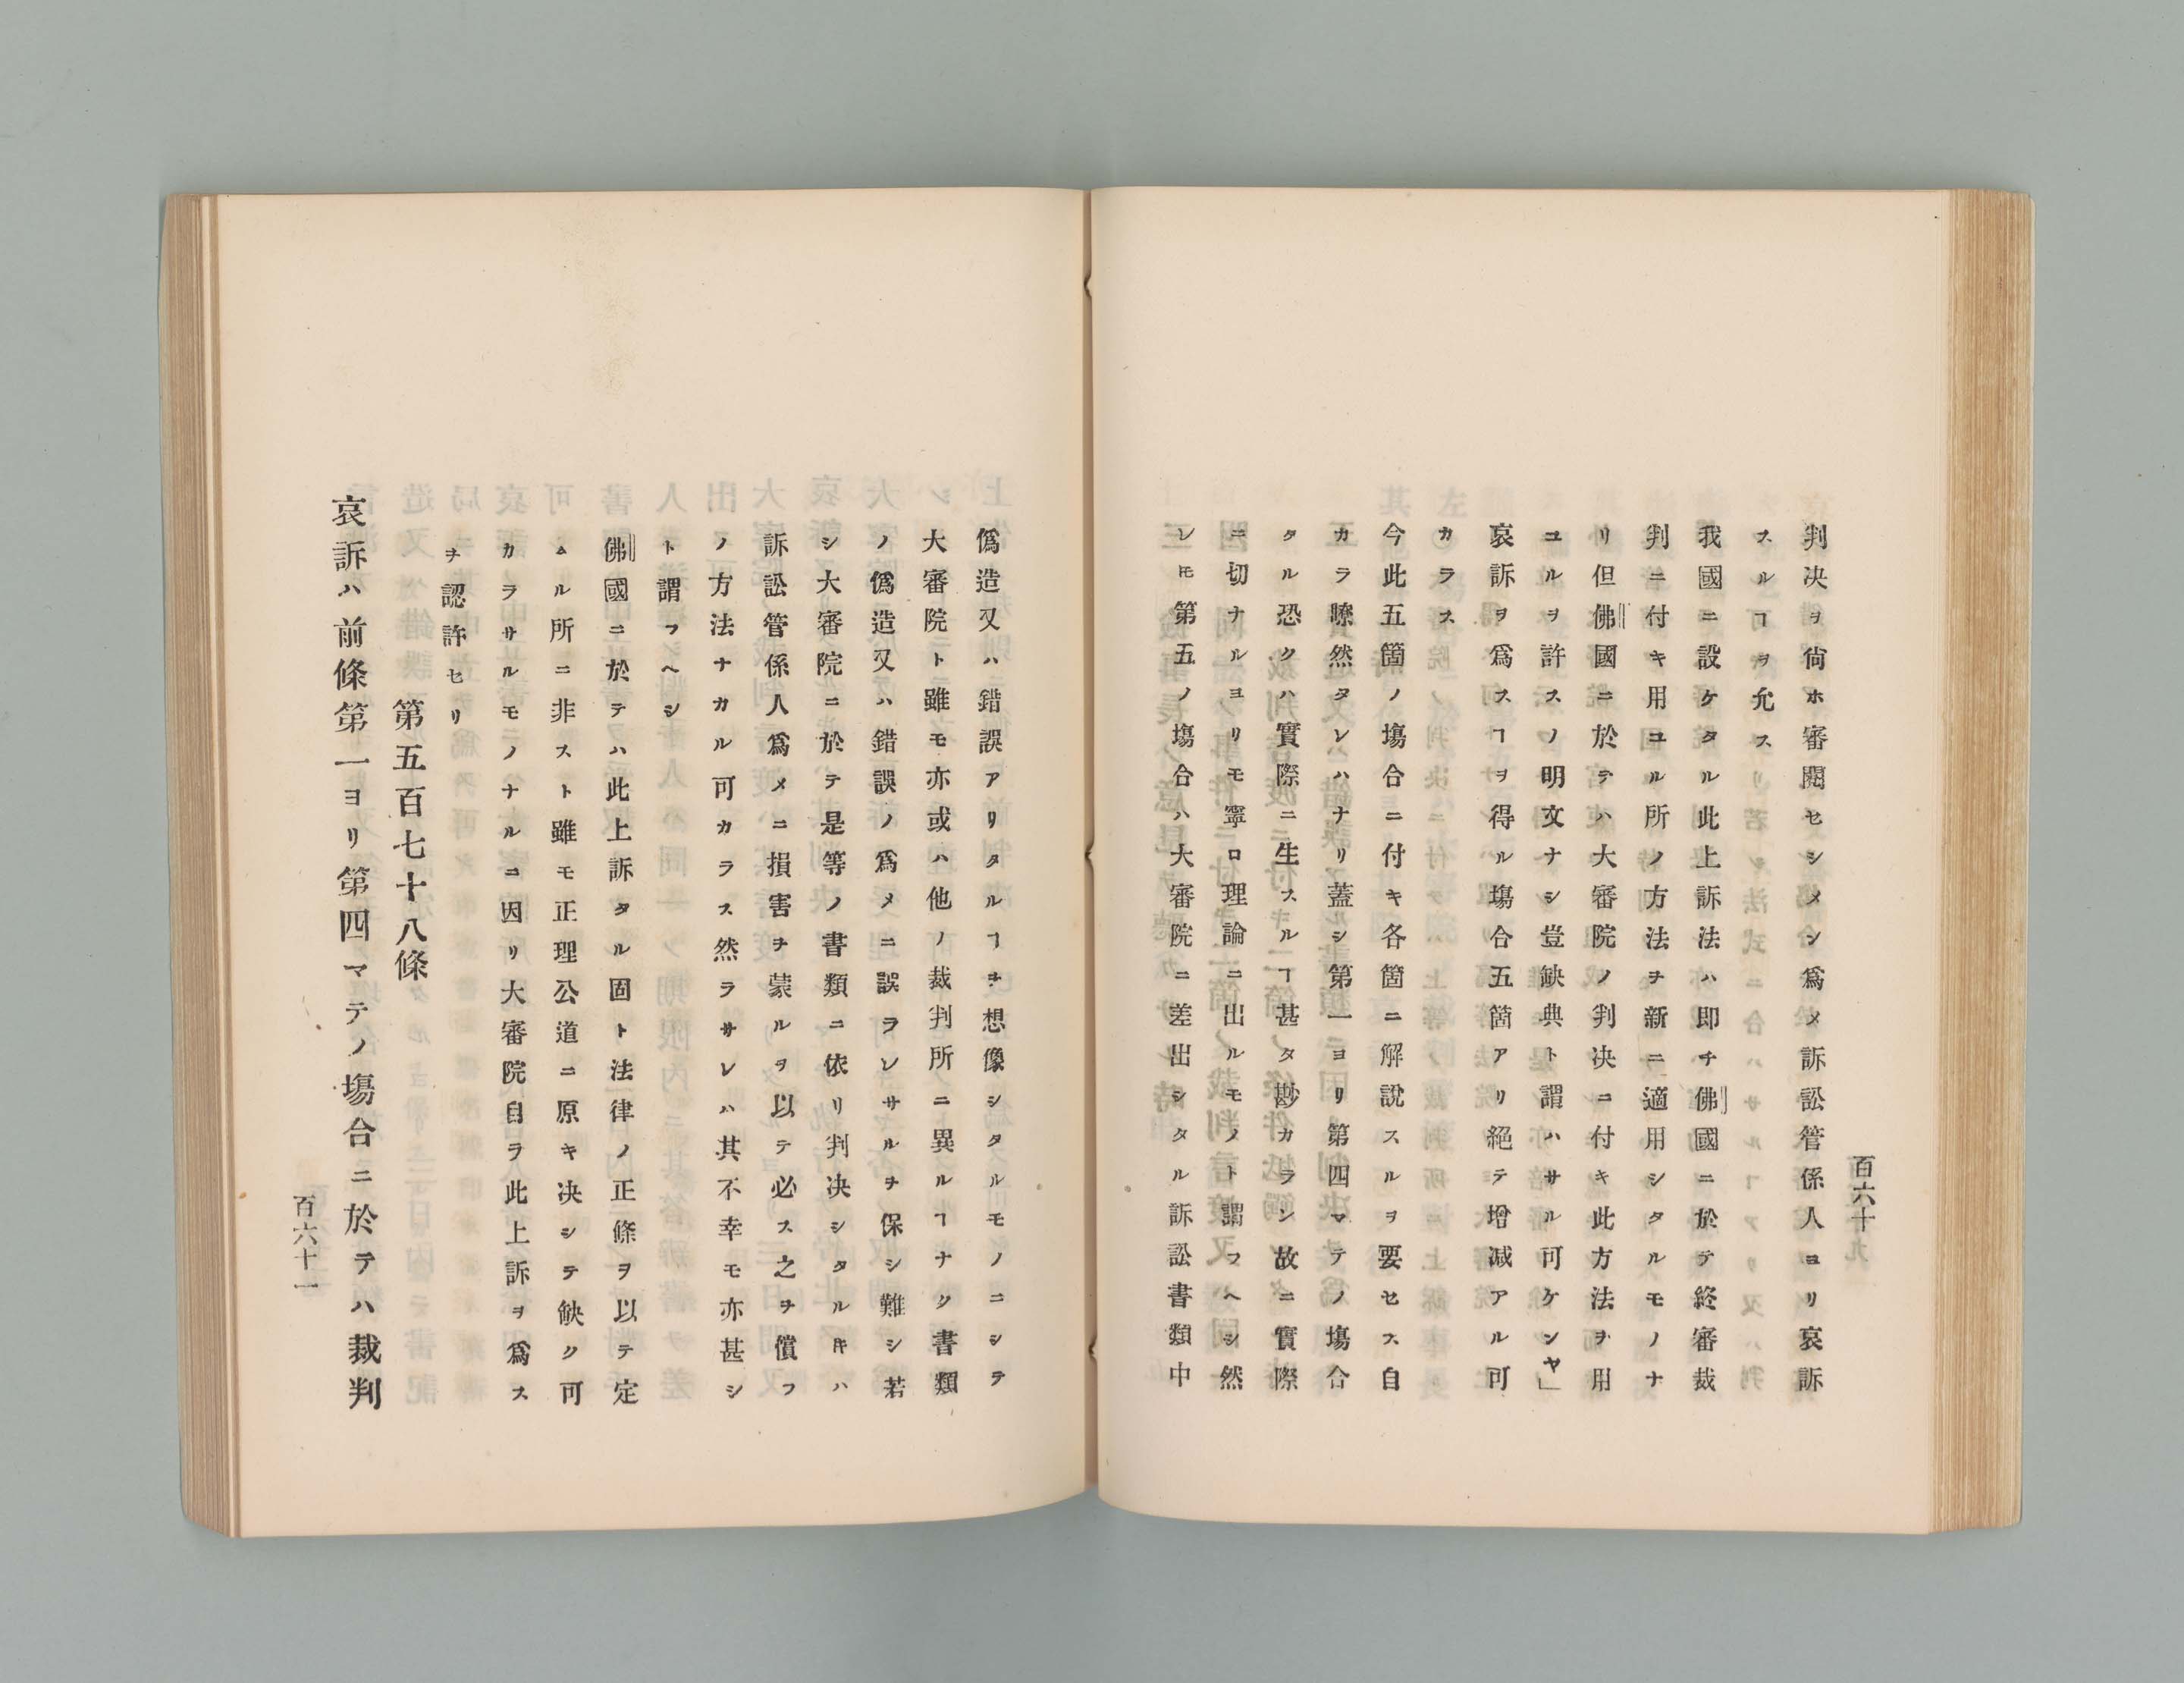 百六十
判决ヲ尙ホ審閱セシメン爲メ訴訟管係人ヨリ哀訴
スルヿヲ允ス
我國ニ設ケタル此上訴法ハ卽チ佛國ニ於テ終審裁
判ニ付キ用ユル所ノ方法ヲ新ニ適用シタルモノナ
リ但佛國ニ於テハ大審院ノ判决ニ付キ此方法ヲ用
ユルヲ許スノ明文ナシ豈缺典ト謂ハサル可ケンヤ」
哀訴ヲ爲スヿヲ得ル塲合五箇アリ絕テ增减アル可
カラス
今此五箇ノ塲合ニ付キ各箇ニ解說スルヲ要セス自
カラ瞭然タレハナリ蓋シ第一ヨリ第四マテノ塲合
タル恐クハ實際ニ生スルヿ甚タ尠カラン故ニ實際
ニ切ナルヨリモ寧ロ理論ニ出ルモノト謂フヘシ然
レトモ第五ノ塲合ハ大審院ニ差出シタル訴訟書類中
僞造又ハ錯誤アリタルヿヲ想像シタルモノニシテ
大審院ト雖モ亦或ハ他ノ裁判所ニ異ルヿナク書類
ノ僞造又ハ錯誤ノ爲メニ誤ラレサルヲ保シ難シ若
シ大審院ニ於テ是等ノ書類ニ依リ判决シタルキハ
訴訟管係人爲メニ損害ヲ蒙ルヲ以テ必ス之ヲ償フ
ノ方法ナカル可カラス然ラサレハ其不幸モ亦甚シ
ト謂フヘシ
佛國ニ於テハ此上訴タル固ト法律ノ正條ヲ以テ定
ムル所ニ非スト雖モ正理公道ニ原キ决シテ缺ク可
カラサルモノナルニ因リ大審院自ラ此上訴ヲ爲ス
ヲ認許セリ
第五百七十八條
哀訴ハ前條第一ヨリ第四マテノ塲合ニ於テハ裁判
百六十一